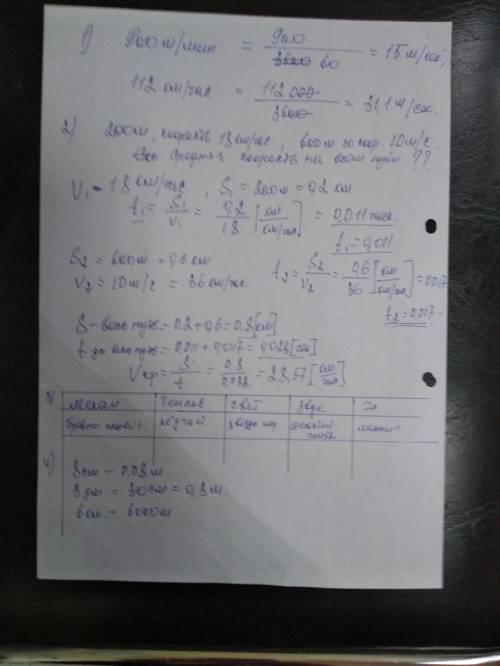 1) 900 м/мин = 900 / 60 = 15 м/сек;
112 км/час = 112000 / 3600 = 31,1 м/сек.
2) 200м, скорость 18 км/час, 600м со скор. 10 м/с.
средняя скорость на всём пути ??
V₁ = 18 км/час, S₁ = 200м = 0,2 км.
t₁ = S₁ / V₁ = 0,2 / 18 [км / км/час] = 0,011 часа.
t₁ = 0,011
S₂ = 600м = 0,6 км
V₂ = 10м/с = 36 км/час
t₂ = S₂ / V₂ = 0,6 / 36 [км / км/час] = 0,017
t₂ = 0,017
S - весь путь = 0,2 + 0,6 = 0,8 [км]
t за весь путь = 0,011 + 0,017 = 0,028 [час]
Vср = S / t = 0,8 / 0,028 = 28,57 [км / час]
3) Механ Теплов Свет Звук Эл
4) 3см - 0,03м.
3дм = 30см = 0,3м.
6км - 6000м